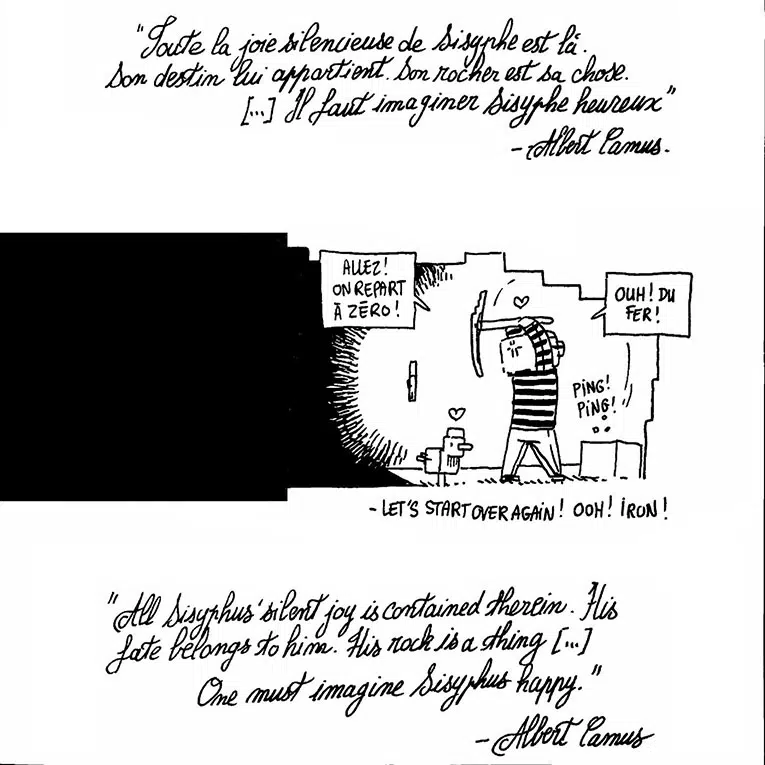 "Toute la joie silencieuse de Sisyphe est là.
Son destin lui appartient. Son rocher est sa chose.
[...] Il faut imaginer Sisyphe heureux"
- Albert Camus.
ALLEZ!
ON REPART
À ZÉRO!
OUH! DU
FER!
PING!
PING!
- LET'S START OVER AGAIN! OOH! IRON!
"All Sisyphus' silent joy is contained therein. His
fate belongs to him. His rock is a thing [...]
One must imagine Sisyphus happy."
- Albert Camus